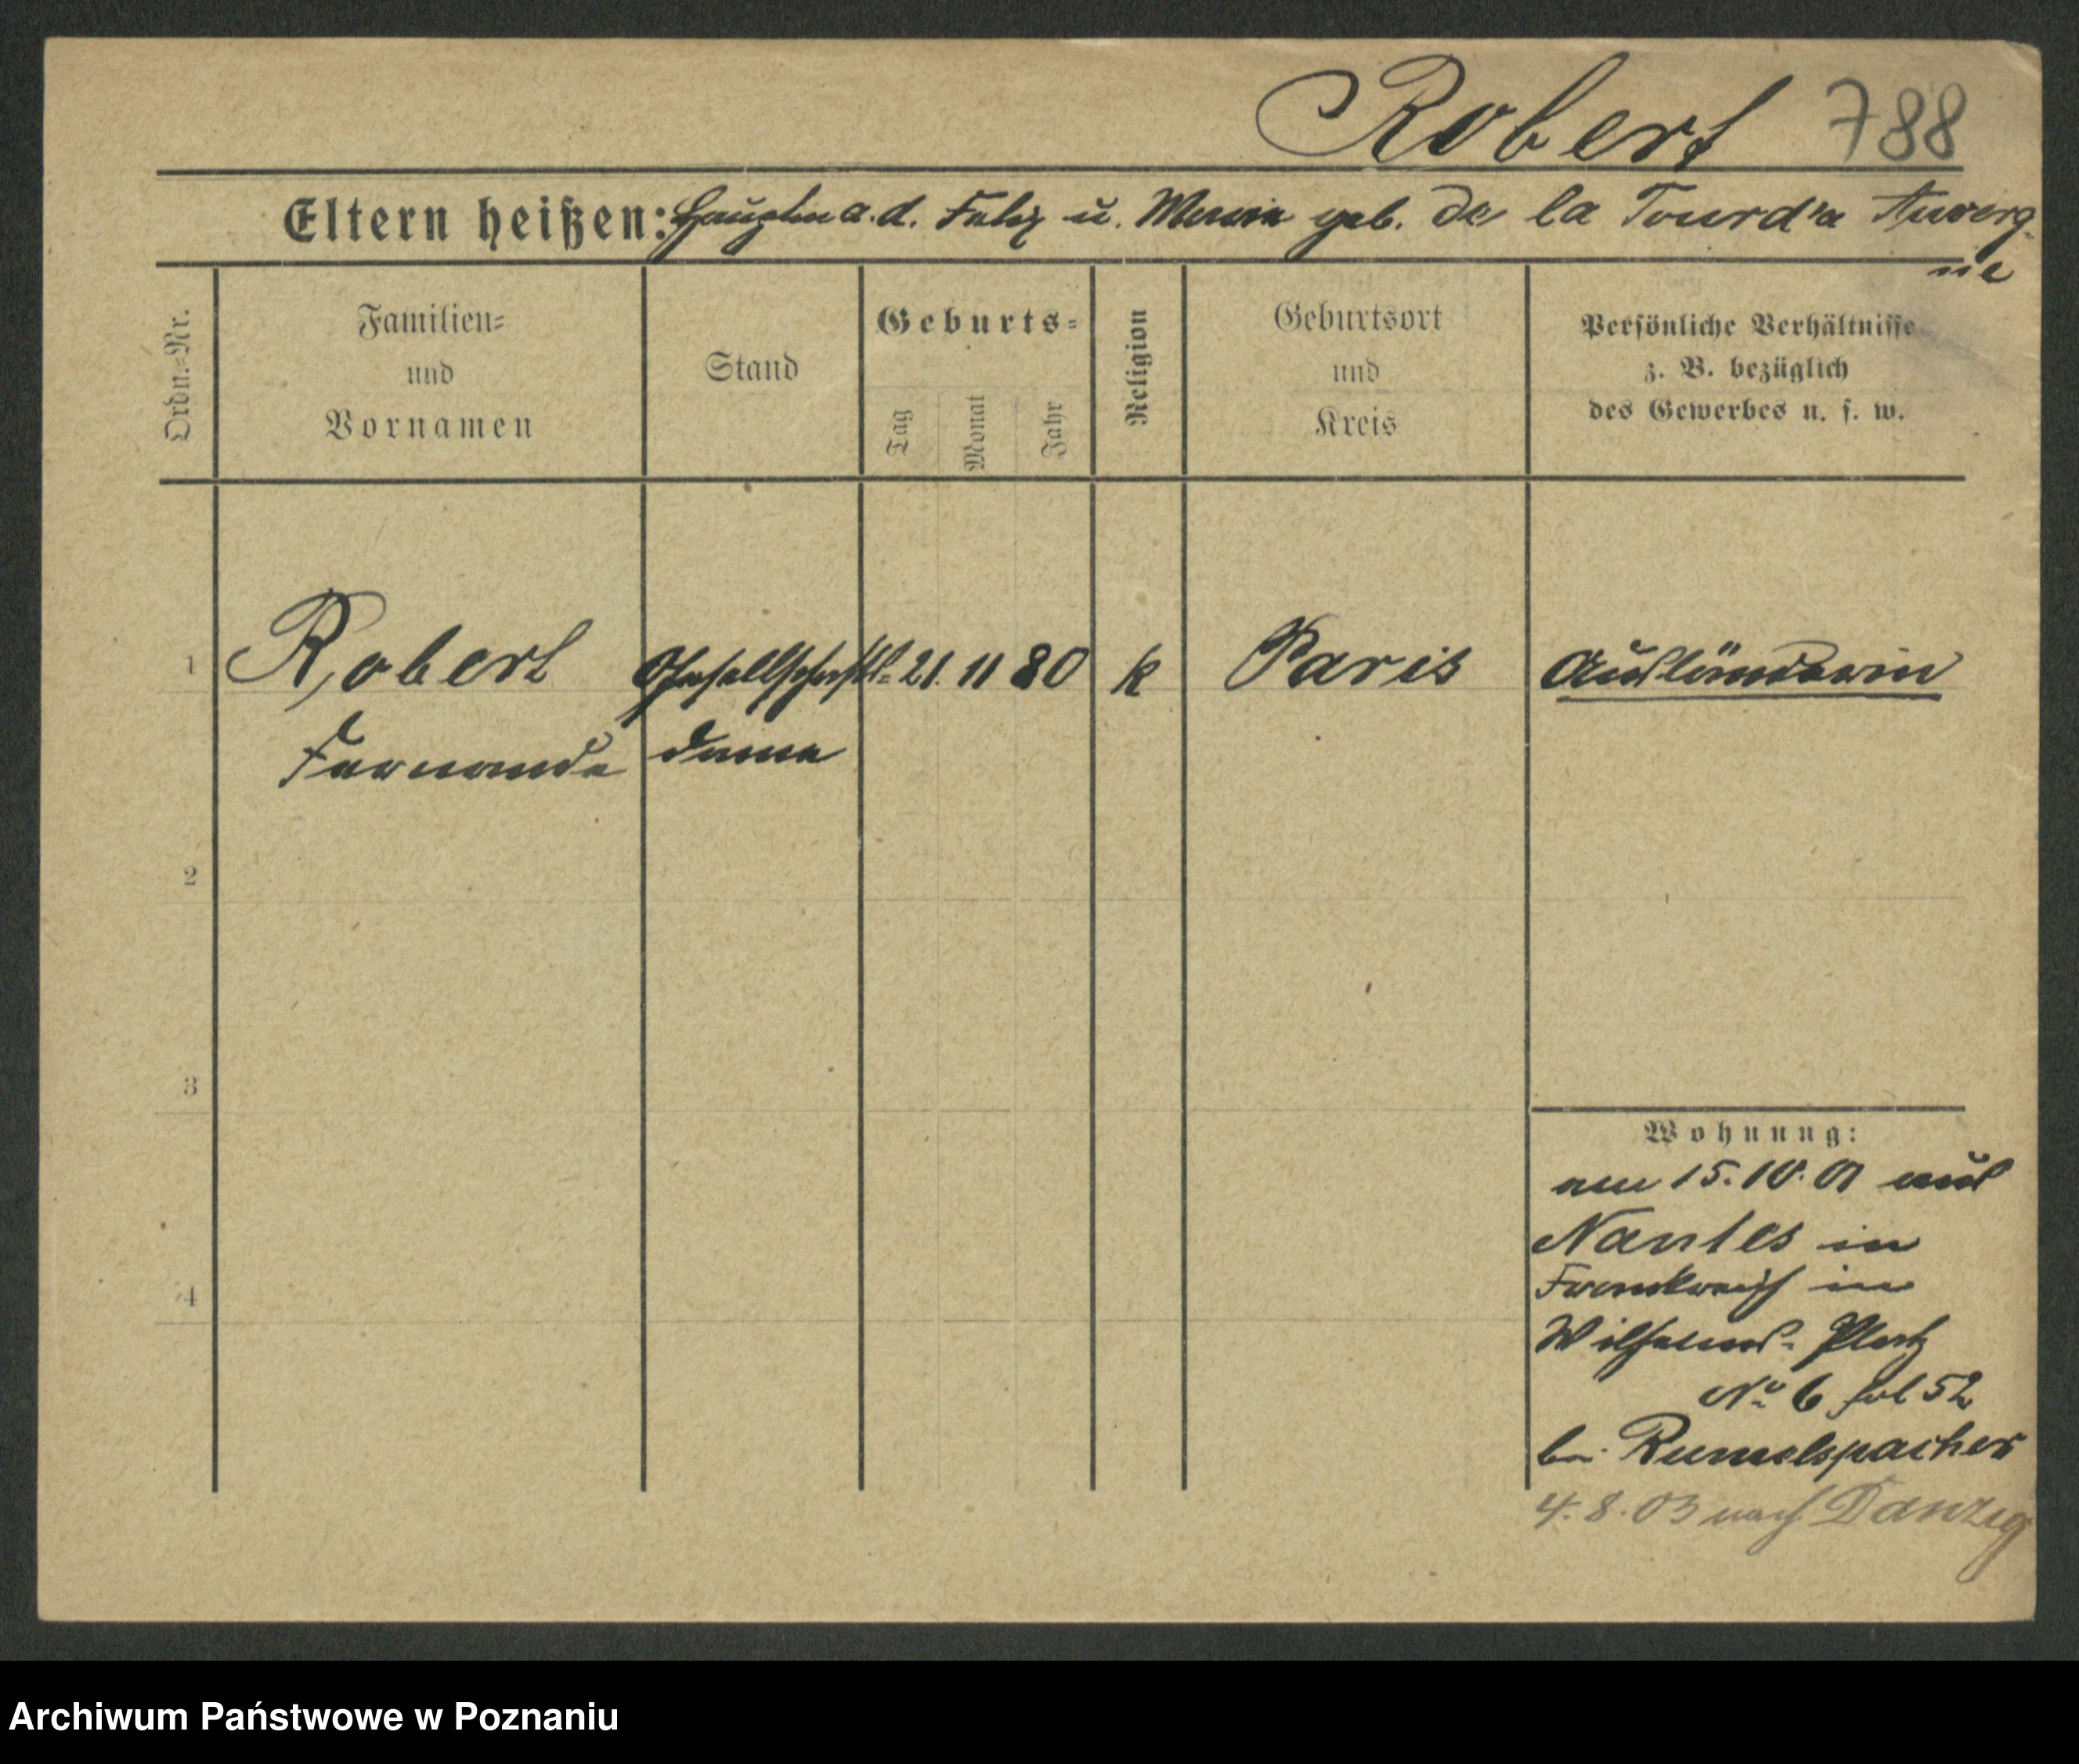 Robert 788
Eltern heißen: Hauptm a. d. Felix u. Maria geb. de la Tour d'a Auverg-
ne
Ordn.=Nr.
Familien=
und
Vornamen
Stand
Geburts=
Tag
Monat
Jahr
Religion
Geburtsort
und
Kreis
Persönliche Verhältnisse
z. B. bezüglich
des Gewerbes u. s. w.
1 Robert Gesellschafts= 21. 11 80 k Paris Ausländerin
Fernande dame
2
3
4
Wohnung:
am 15. 10. 01 aus
Nantes in
Frankreich in
Wilhelms= Platz
No 6 fol 52
bei Rumelspacher
4. 8. 03 nach Danzig
Archiwum Państwowe w Poznaniu